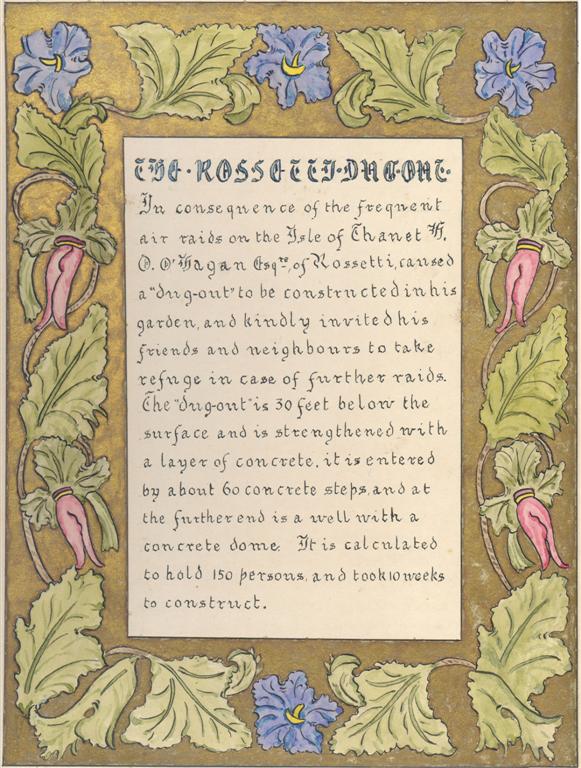 THE·ROSSETTI·DUGOUT·
In consequence of the frequent
air raids on the Isle of Thanet H.
O. O'Hagan Esqre, of Rossetti, caused
a "dug-out" to be constructed in his
garden, and kindly invited his
friends and neighbours to take
refuge in case of further raids.
The "dug-out" is 30 feet below the
surface and is strengthened with
a layer of concrete, it is entered
by about 60 concrete steps, and at
the further end is a well with a
concrete dome. It is calculated
to hold 150 persons, and took 10 weeks
to construct.